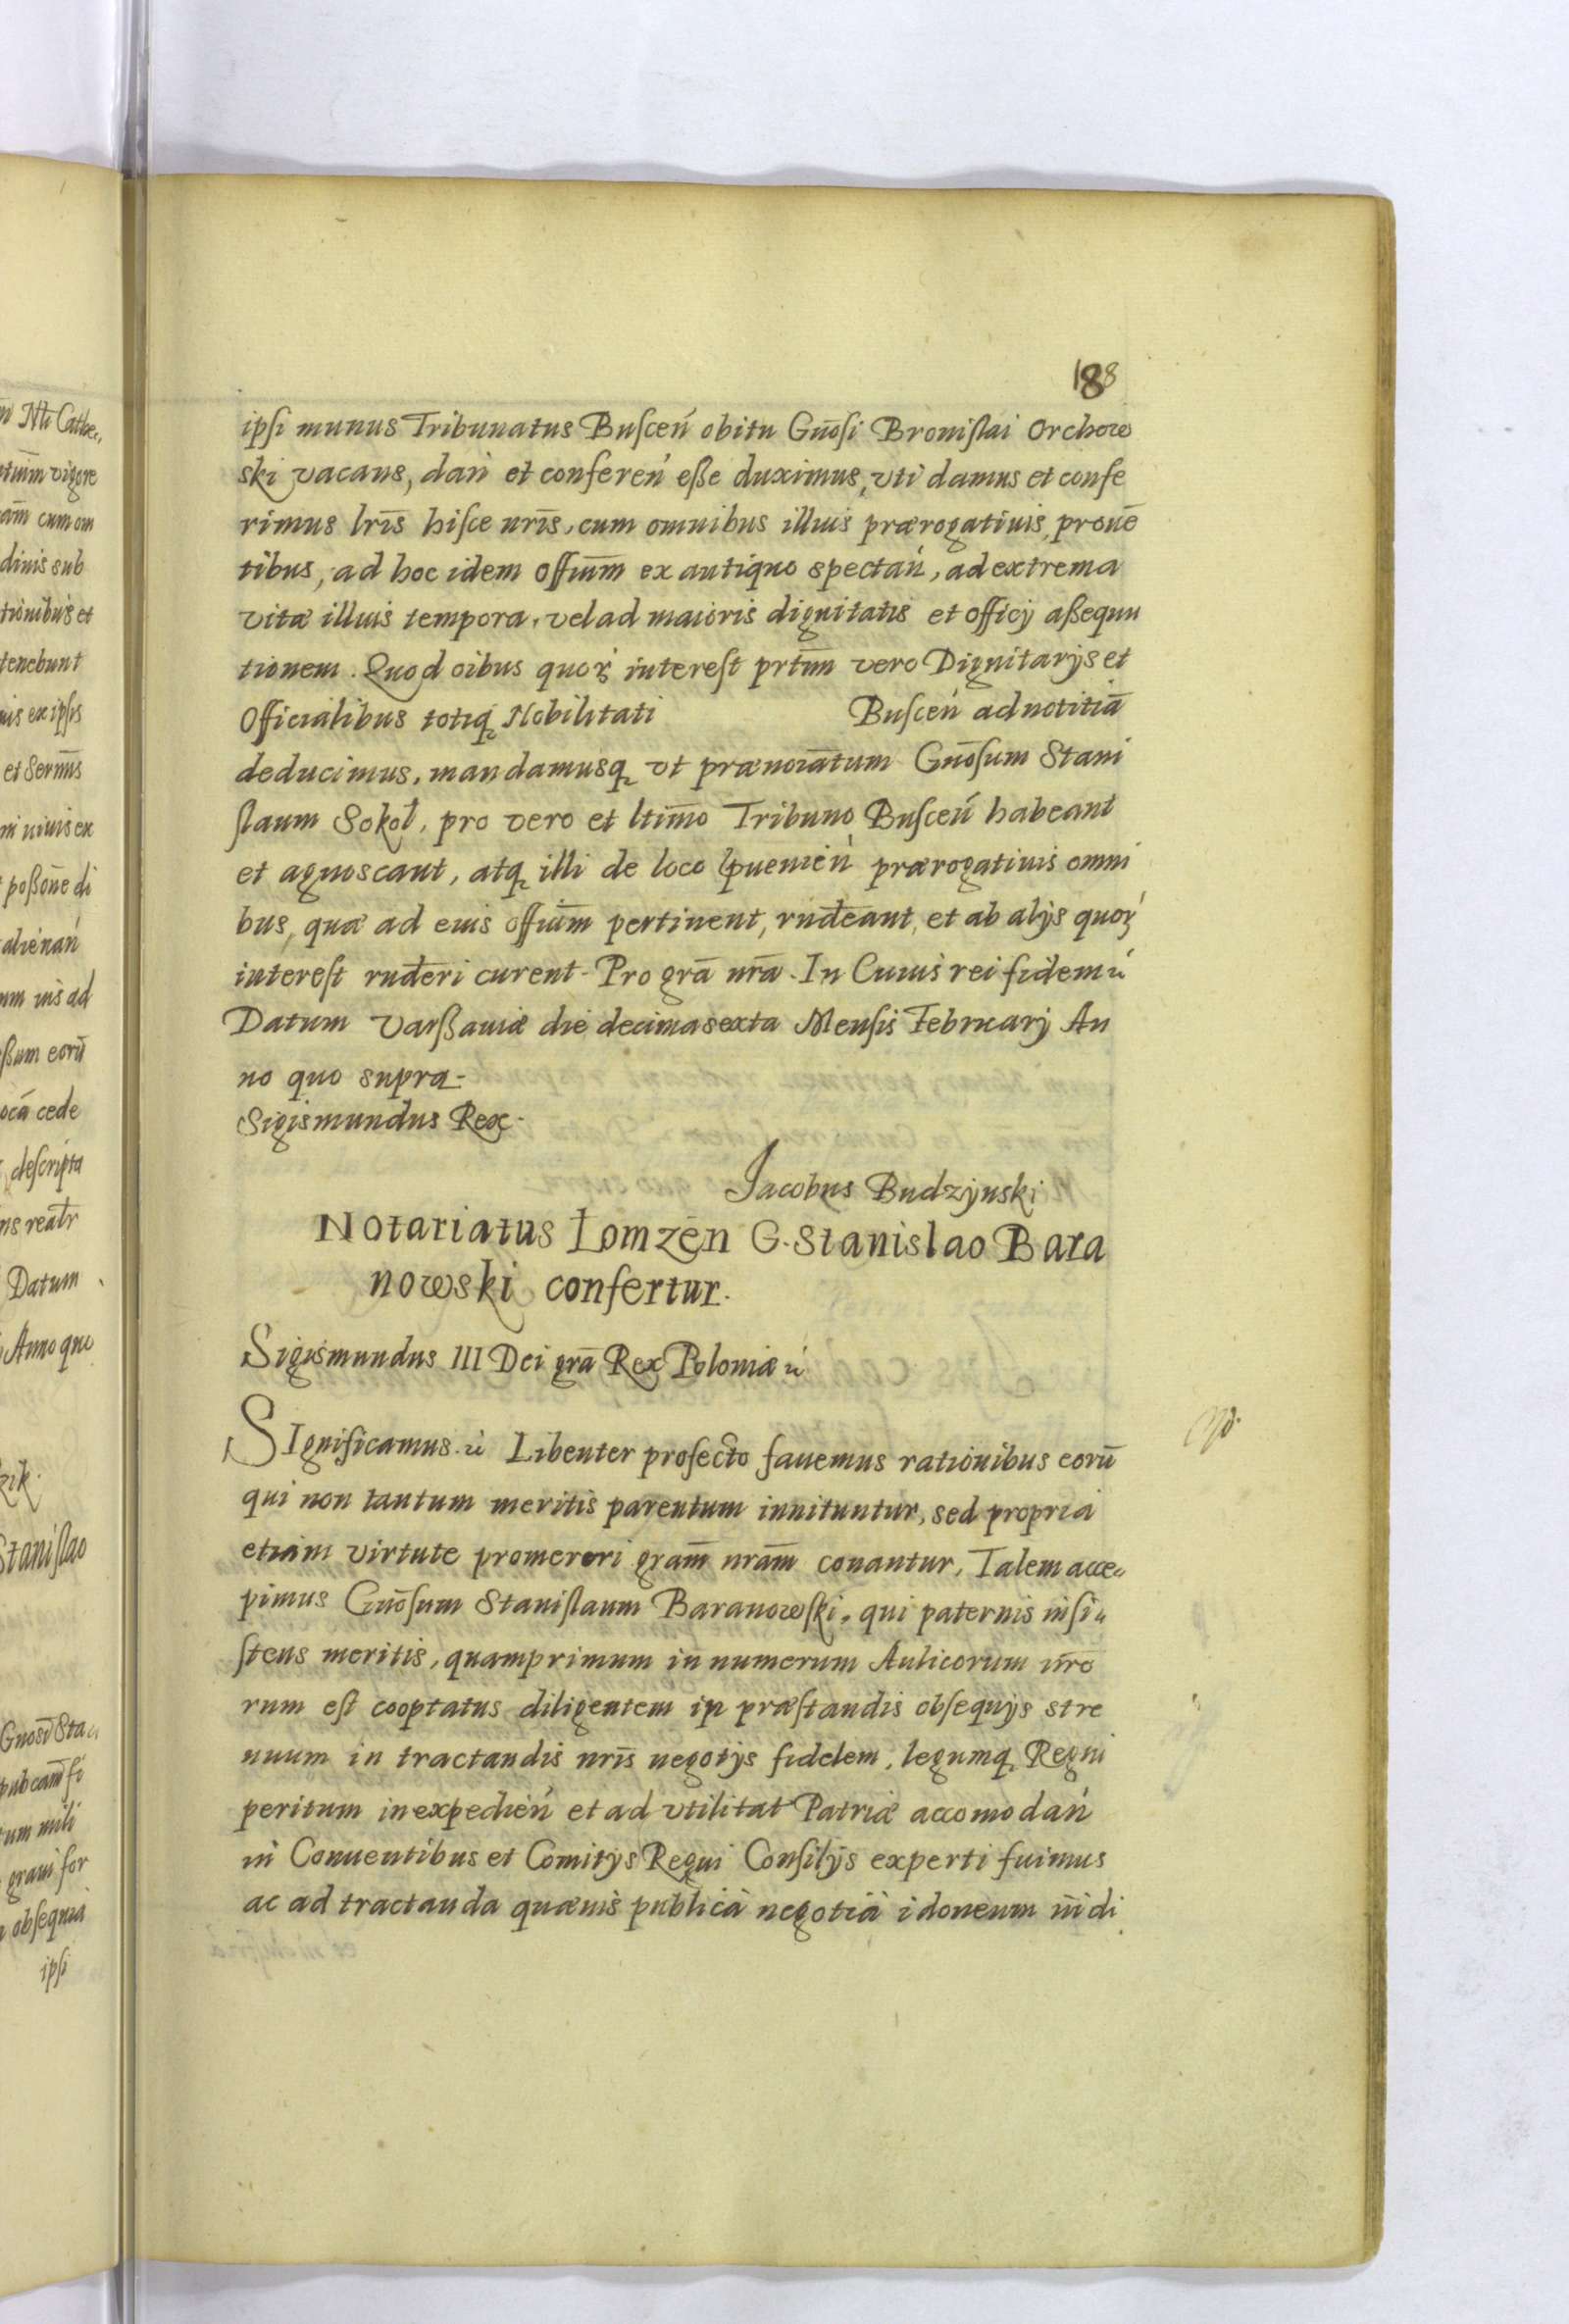 188
ipſi munus Tribunatus Buſceń obitu Gnōſi Broniſlai Orchow
ski vacans, dań et confereń eße duximus, vti damus et confe
rimus lrīs hiſce nrīs, cum omnibus illius prærogatiuis, prouē
tibus, ad hoc idem Offium̄ ex antiquo spectań, ad extrema
vitæ illius tempora, vel ad maioris dignitatis et officÿ aßequu
tionem. Quod oibus quoꝝ intereſt prtīm vero Dignitarÿs et
Officialibus totiqꝫ Nobilitati Buſceń ad notitiā
deducimus, mandamusqꝫ vt prænoīatum Gnōſum Stani
ſlaum Sokoł, pro vero et ltimō Tribuno Buſceń habeant
et agnoscant, atqꝫ illi de loco ꝑuenień prærogatiuis omni
bus, quæ ad eius offium̄ pertinent, rnđeant, et ab alÿs quoꝝ
intereſt rnđeri curent. Pro grā nrā. In Cuius rei fidem ꝛć
Datum Varßauiæ die decima sexta Mensis Februarÿ An
no quo supra.
Sigismundus Rex.
Jacobus Budzÿnski
Notariatus Łomzeń G. Stanislao Bara
nowski confertur.
Sigismundus III Dei grā Rex Poloniæ ꝛć
SIgnificamus ꝛć Libenter profecto fauemus rationibus eorū
qui non tantum meritis parentum innituntur, sed propria
etiam virtute promereri gram̄ nram̄ conantur, Talem acce„
pimus Gnōſum Staniſlaum Baranowſki, qui paternis inſi„
ſtens meritis, quamprimum in numerum Aulicorum nr̄o
rum eſt cooptatus diligentem in præſtandis obſequÿs stre
nuum in tractandis nrīs negotÿs fidelem, legumqꝫ Regni
peritum in expedień et ad vtilitat Patriæ accomodań
in Conuentibus et Comitÿs Regni Conſilÿs experti fuimus
ac ad tractanda quæuis publica negotia idoneum iñdi